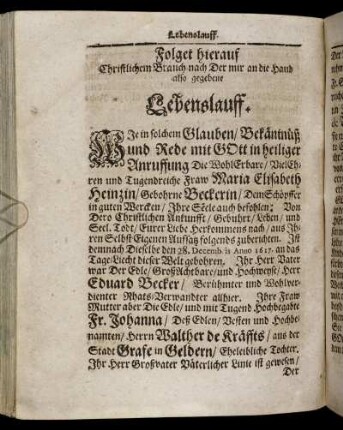 Lebenslauff.
Folget hierauf
Christlichem Brauch nach Der mir an die Hand
also gegebene
Lebenslauff.
WIe in solchem Glauben/ Bekäntnüß
und Rede mit GOtt in heiliger
Anruffung Die WohlErbare/ VielEh-
ren und Tugendreiche Fraw Maria Elisabeth
Heinzin/ Gebohrne Beckerin/ Dem Schöpffer
in guten Wercken/ Ihre Seele auch befohlen: Von
Dero Christlichen Ankunfft/ Gebuhrt/ Leben/ und
Seel. Todt/ Eurer Liebe Herkommens nach/ aus Ih-
ren Selbst Eigenen Auffsatz folgends zuberichten. Ist
demnach Dieselbe den 28. Decemb. is Anno 1617. an das
Tage-Liecht dieser Welt gebohren. Ihr Herr Vater
war Der Edle/ GroßAchtbare/ und Hochweyse/ Herr
Eduard Becker/ Berühmter und Wohlver-
dienter Rhats-Verwandter allhier. Ihre Fraw
Mutter aber Die Edle/ und mit Tugend Hochbegabte
Fr. Johanna/ Deß Edlen/ Vesten und Hochbe-
namten/ Herrn Walther de Kräffts/ aus der
Stadt Grafe in Geldern/ Eheleibliche Tochter.
Ihr Herr Großvater Väterlicher Linie ist gewesen/
Der